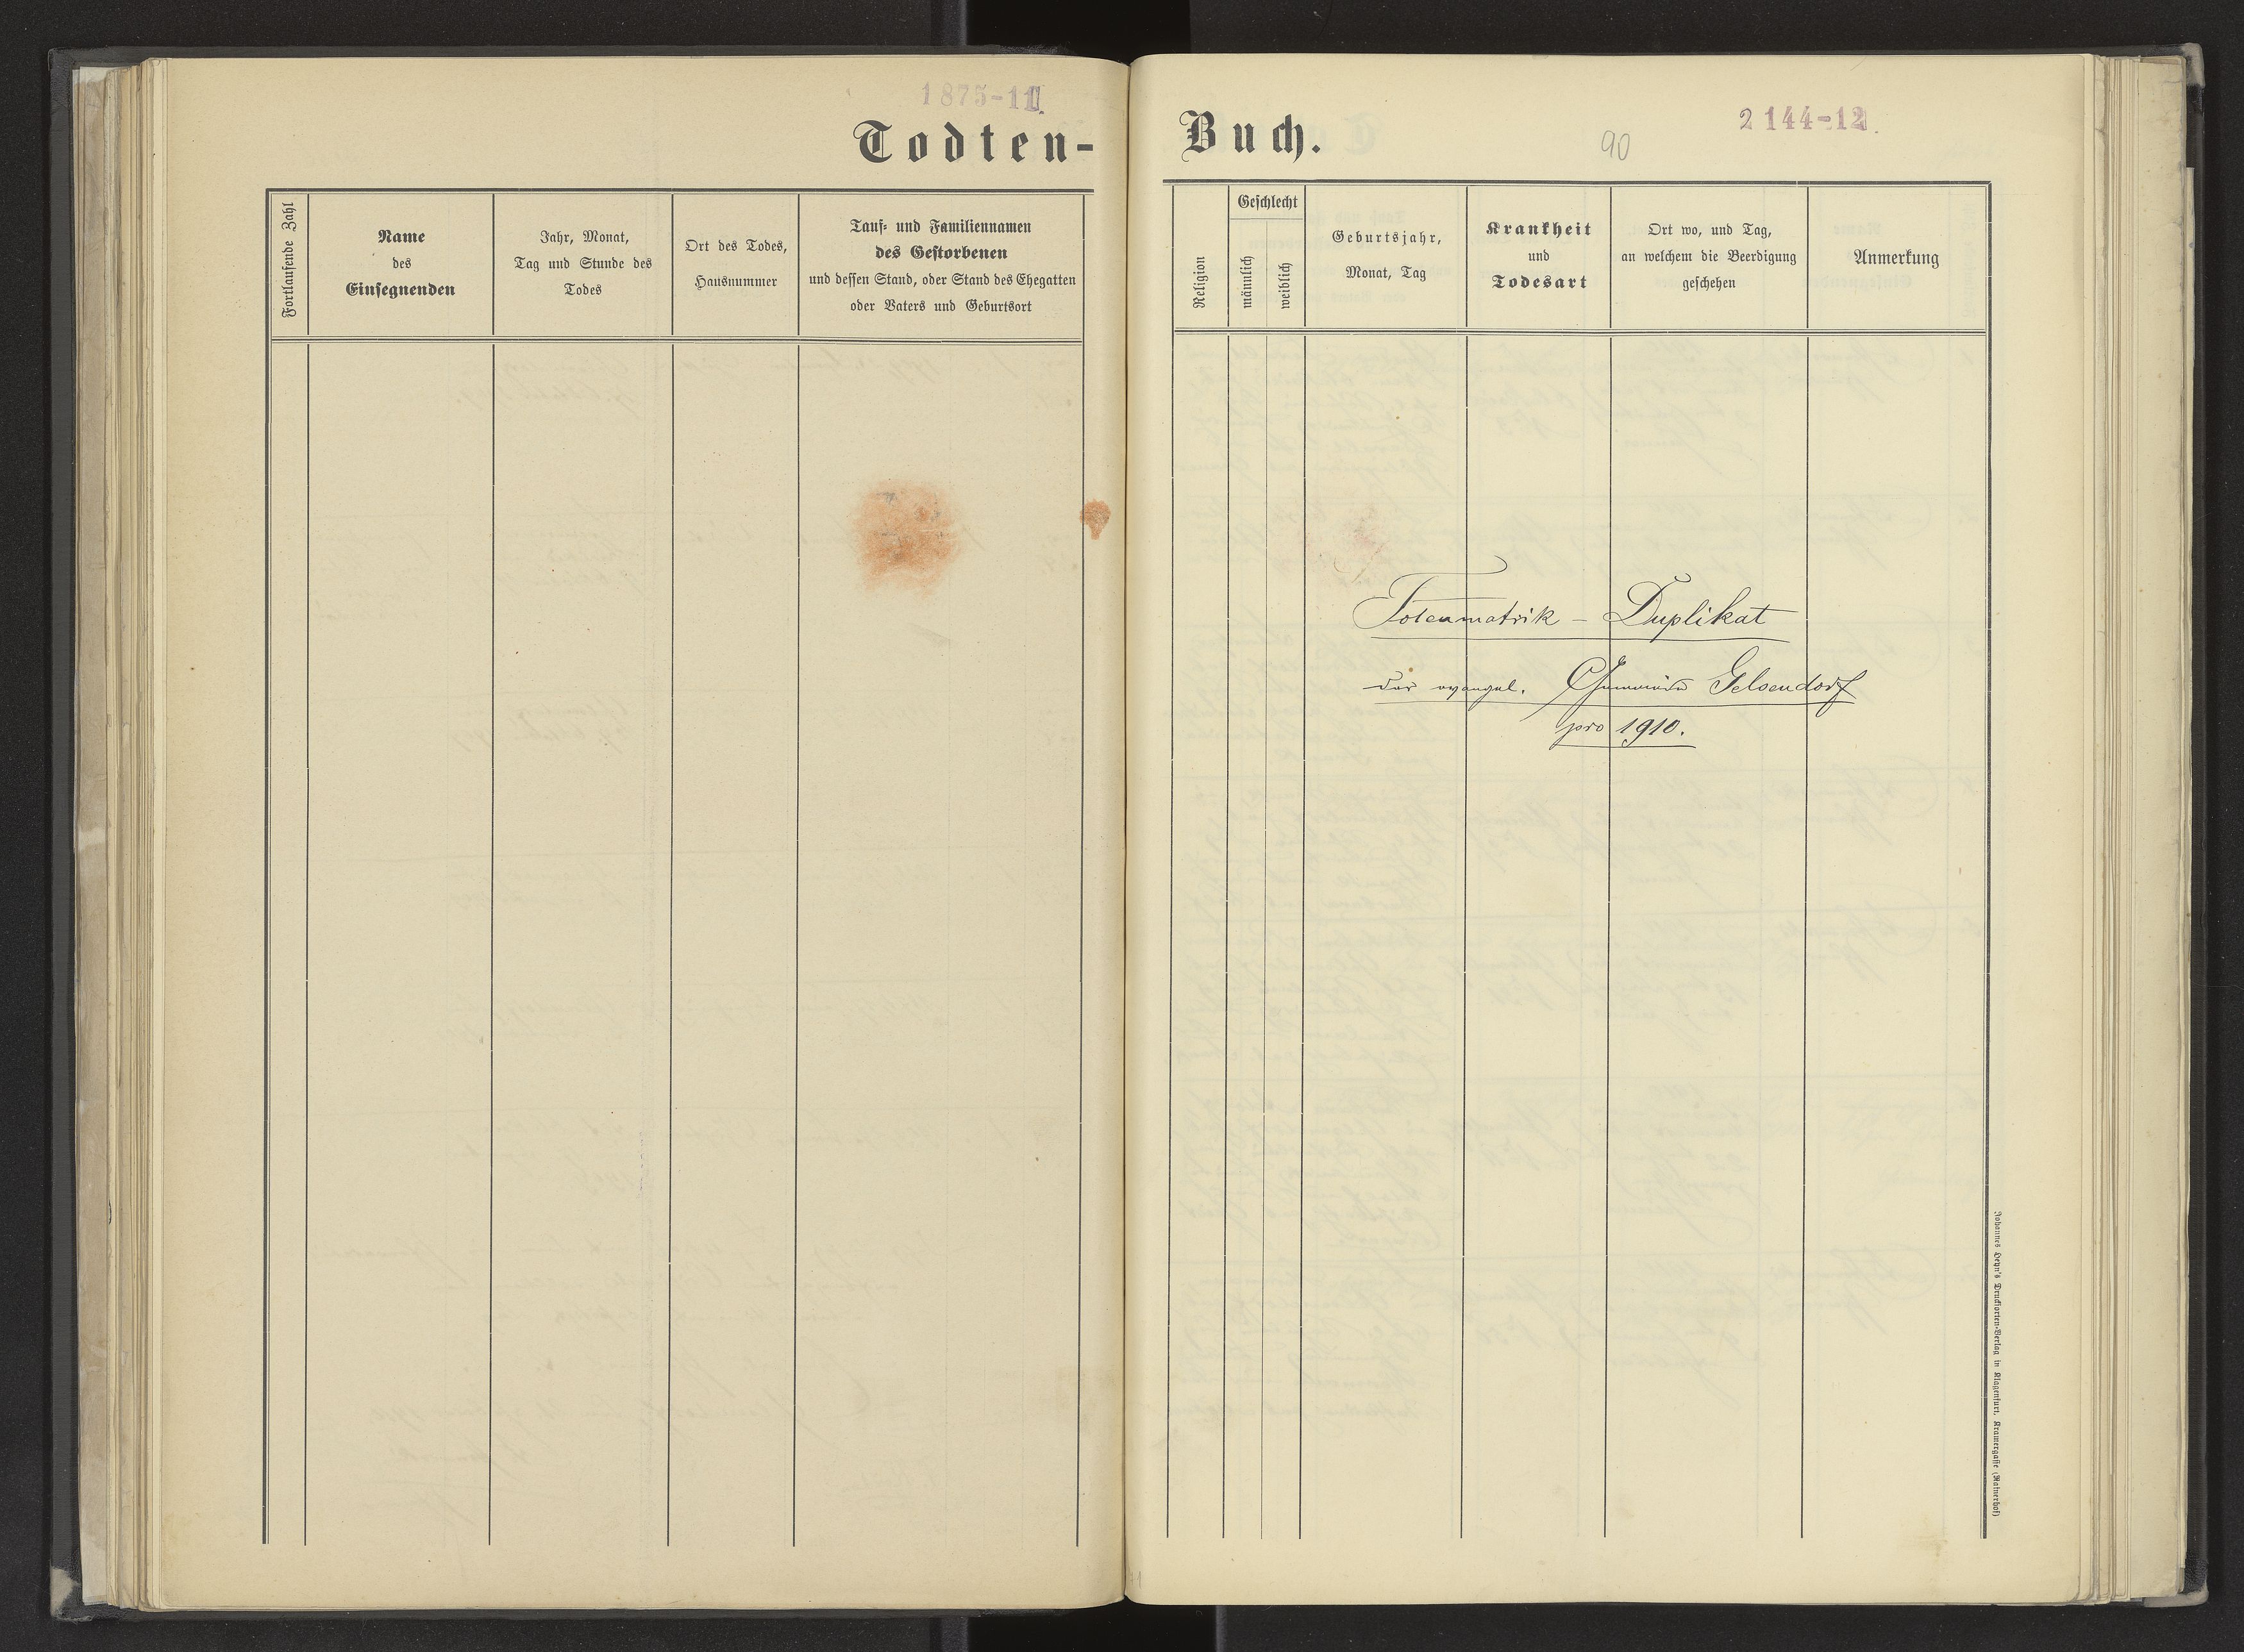 1875-11.
Todten-
Fortlaufende Zahl
Name
des
Einsegnenden
Jahr, Monat,
Tag und Stunde des
Todes
Ort des Todes,
Hausnummer
Tauf- und Familiennamen
des Gestorbenen
und dessen Stand, oder Stand des Ehegatten
oder Vaters und Geburtsort
Buch.
90
2144-12.
Religion
Geschlecht
männlich
weiblich
Geburtsjahr,
Monat, Tag
Krankheit
und
Todesart
Ort wo, und Tag,
an welchem die Beerdigung
geschehen
Anmerkung
Totenmatrik – Duplikat
der evangel. Gemeinde Gelsendorf
pro 1910.
Johannes Heyn's Drucksorten-Verlag in Klagenfurt, Kramergasse (Rainerhof)